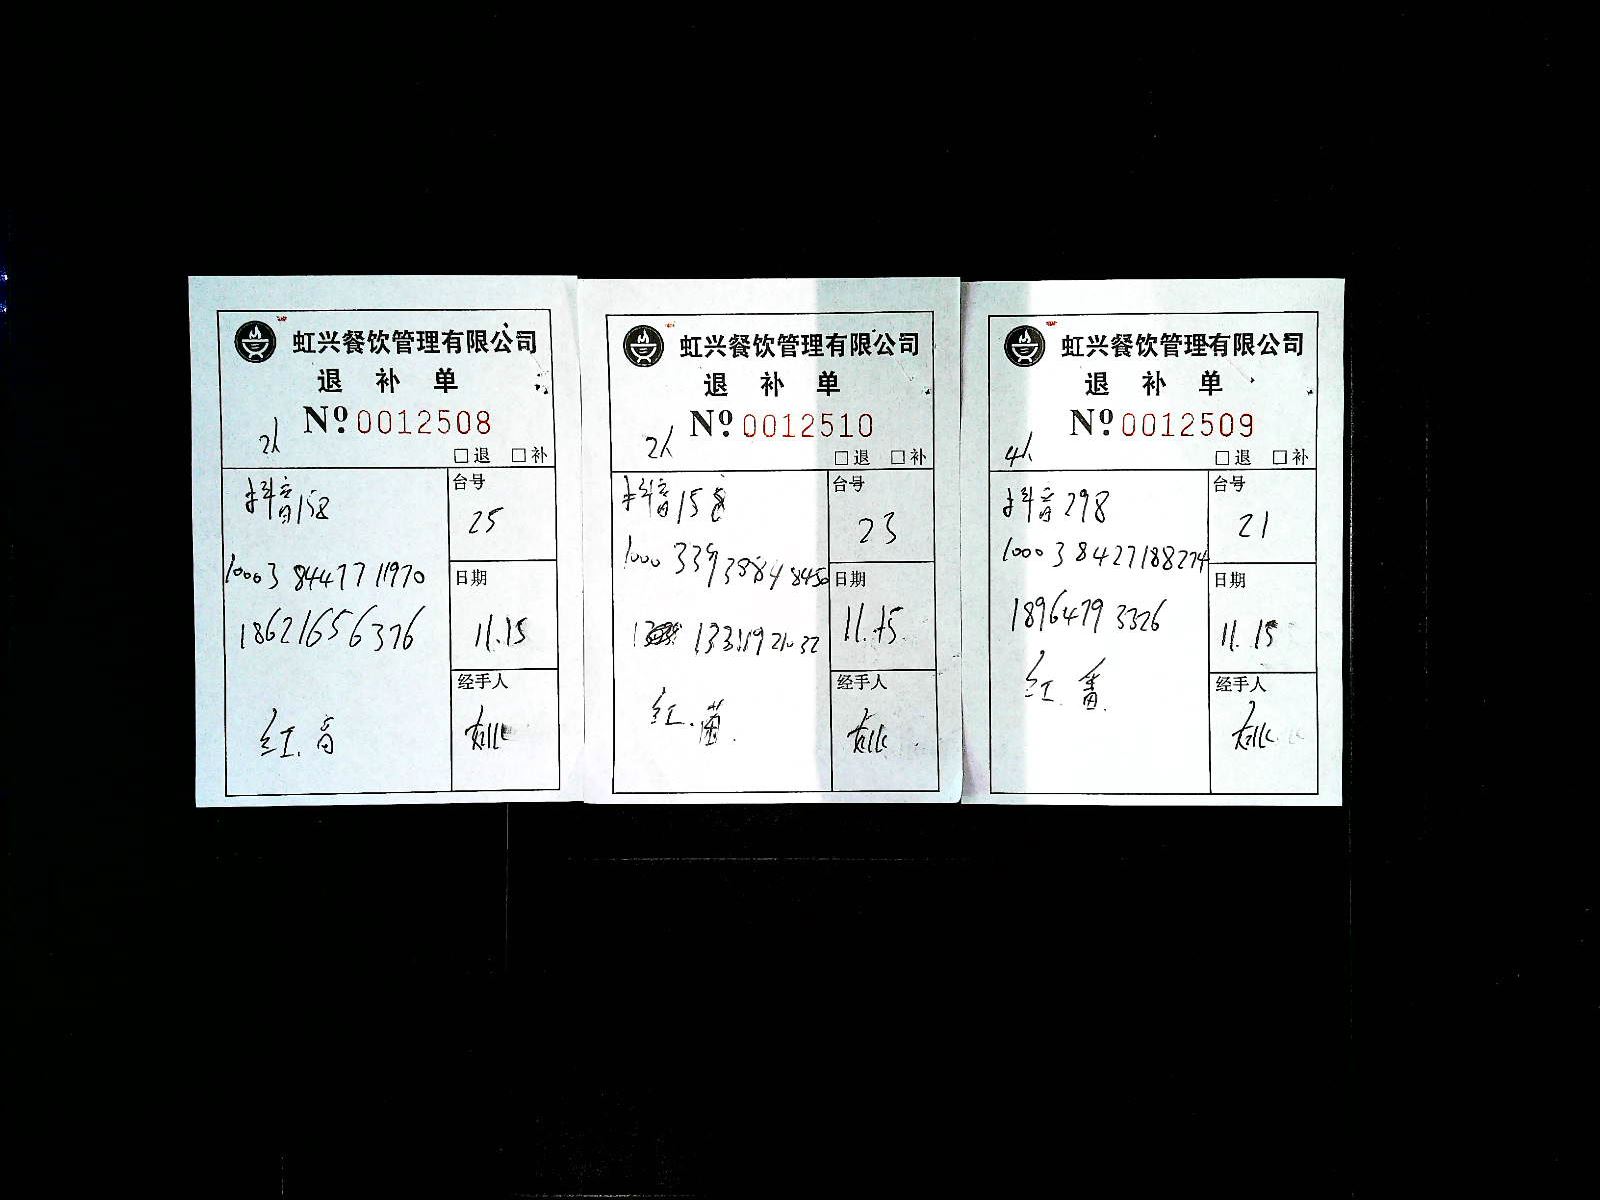 虹兴餐饮管理有限公司
退 补 单
Nº 0012508
2人
□退 □补
抖音158
台号
25
1000384477 11970
日期
18621656376
11.15
经手人
红.音
虹兴餐饮管理有限公司
退 补 单
Nº 0012510
2人
□退 □补
抖音158
台号
23
日期
11.15
经手人
红.
虹兴餐饮管理有限公司
退 补 单
Nº 0012509
4人
□退 □补
抖音298
台号
21
100038427188274
日期
18964793326
11.15
经手人
红.